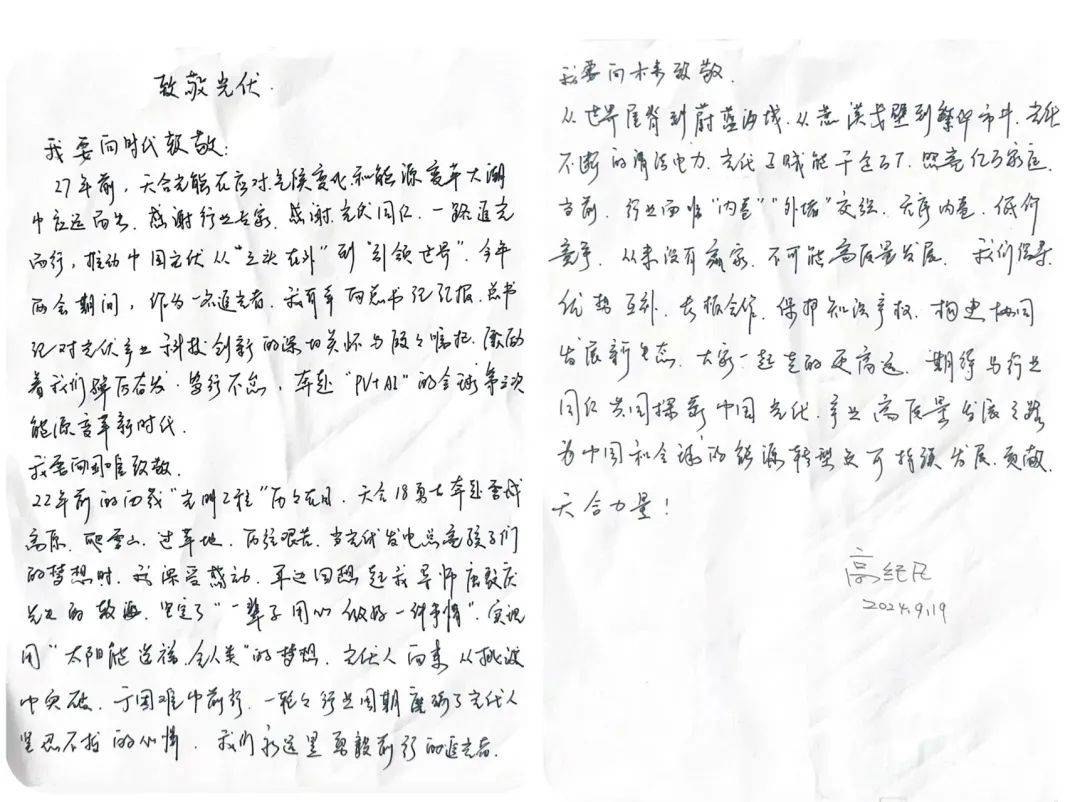 致敬光伏.
我要向时代致敬:
27年前,天合光能在应对气候变化和能源变革大潮
中应运而生. 感谢行业专家, 感谢光伏同仁, 一路追光
而行, 推动中国光伏从“三头在外”到“引领世界”. 今年
两会期间, 作为一名追光者, 我有幸向总书记汇报, 总书
记对光伏产业科技创新的深切关怀与殷殷嘱托, 激励
着我们踔厉奋发、笃行不怠, 奔赴“PV+AI”的全球第三次
能源变革新时代.
我要向困难致敬.
22年前的西藏“光明工程”历历在目, 天合18勇士奔赴雪域
高原, 爬雪山, 过草地, 历经艰苦. 当光伏发电点亮孩子们
的梦想时, 我深受感动, 耳边回想起我导师唐敖庆
先生的教诲, 坚定了“一辈子用心做好一件事情”, 实现
用“太阳能造福全人类”的梦想. 光伏人向来从挑战
中突破, 于困难中前行, 一轮轮行业周期磨砺了光伏人
坚忍不拔的心情, 我们永远是勇毅前行的追光者.
我要向未来致敬.
从世界屋脊到蔚蓝海域, 从荒漠戈壁到繁华市井, 光伏
不断的清洁电力, 光伏了赋能千企百厂, 照亮亿万家庭
当前, 行业面临“内卷”“外堵”交织, 无序内卷, 低价
竞争, 从来没有赢家, 不可能高质量发展. 我们倡导
优势互补, 长板合作, 保护知识产权, 构建协同
发展新生态, 大家一起走的更高远. 期待与行业
同仁共同探索中国光伏产业高质量发展之路
为中国和全球的能源转型及可持续发展, 贡献
天合力量!
高纪凡
2024.9.19